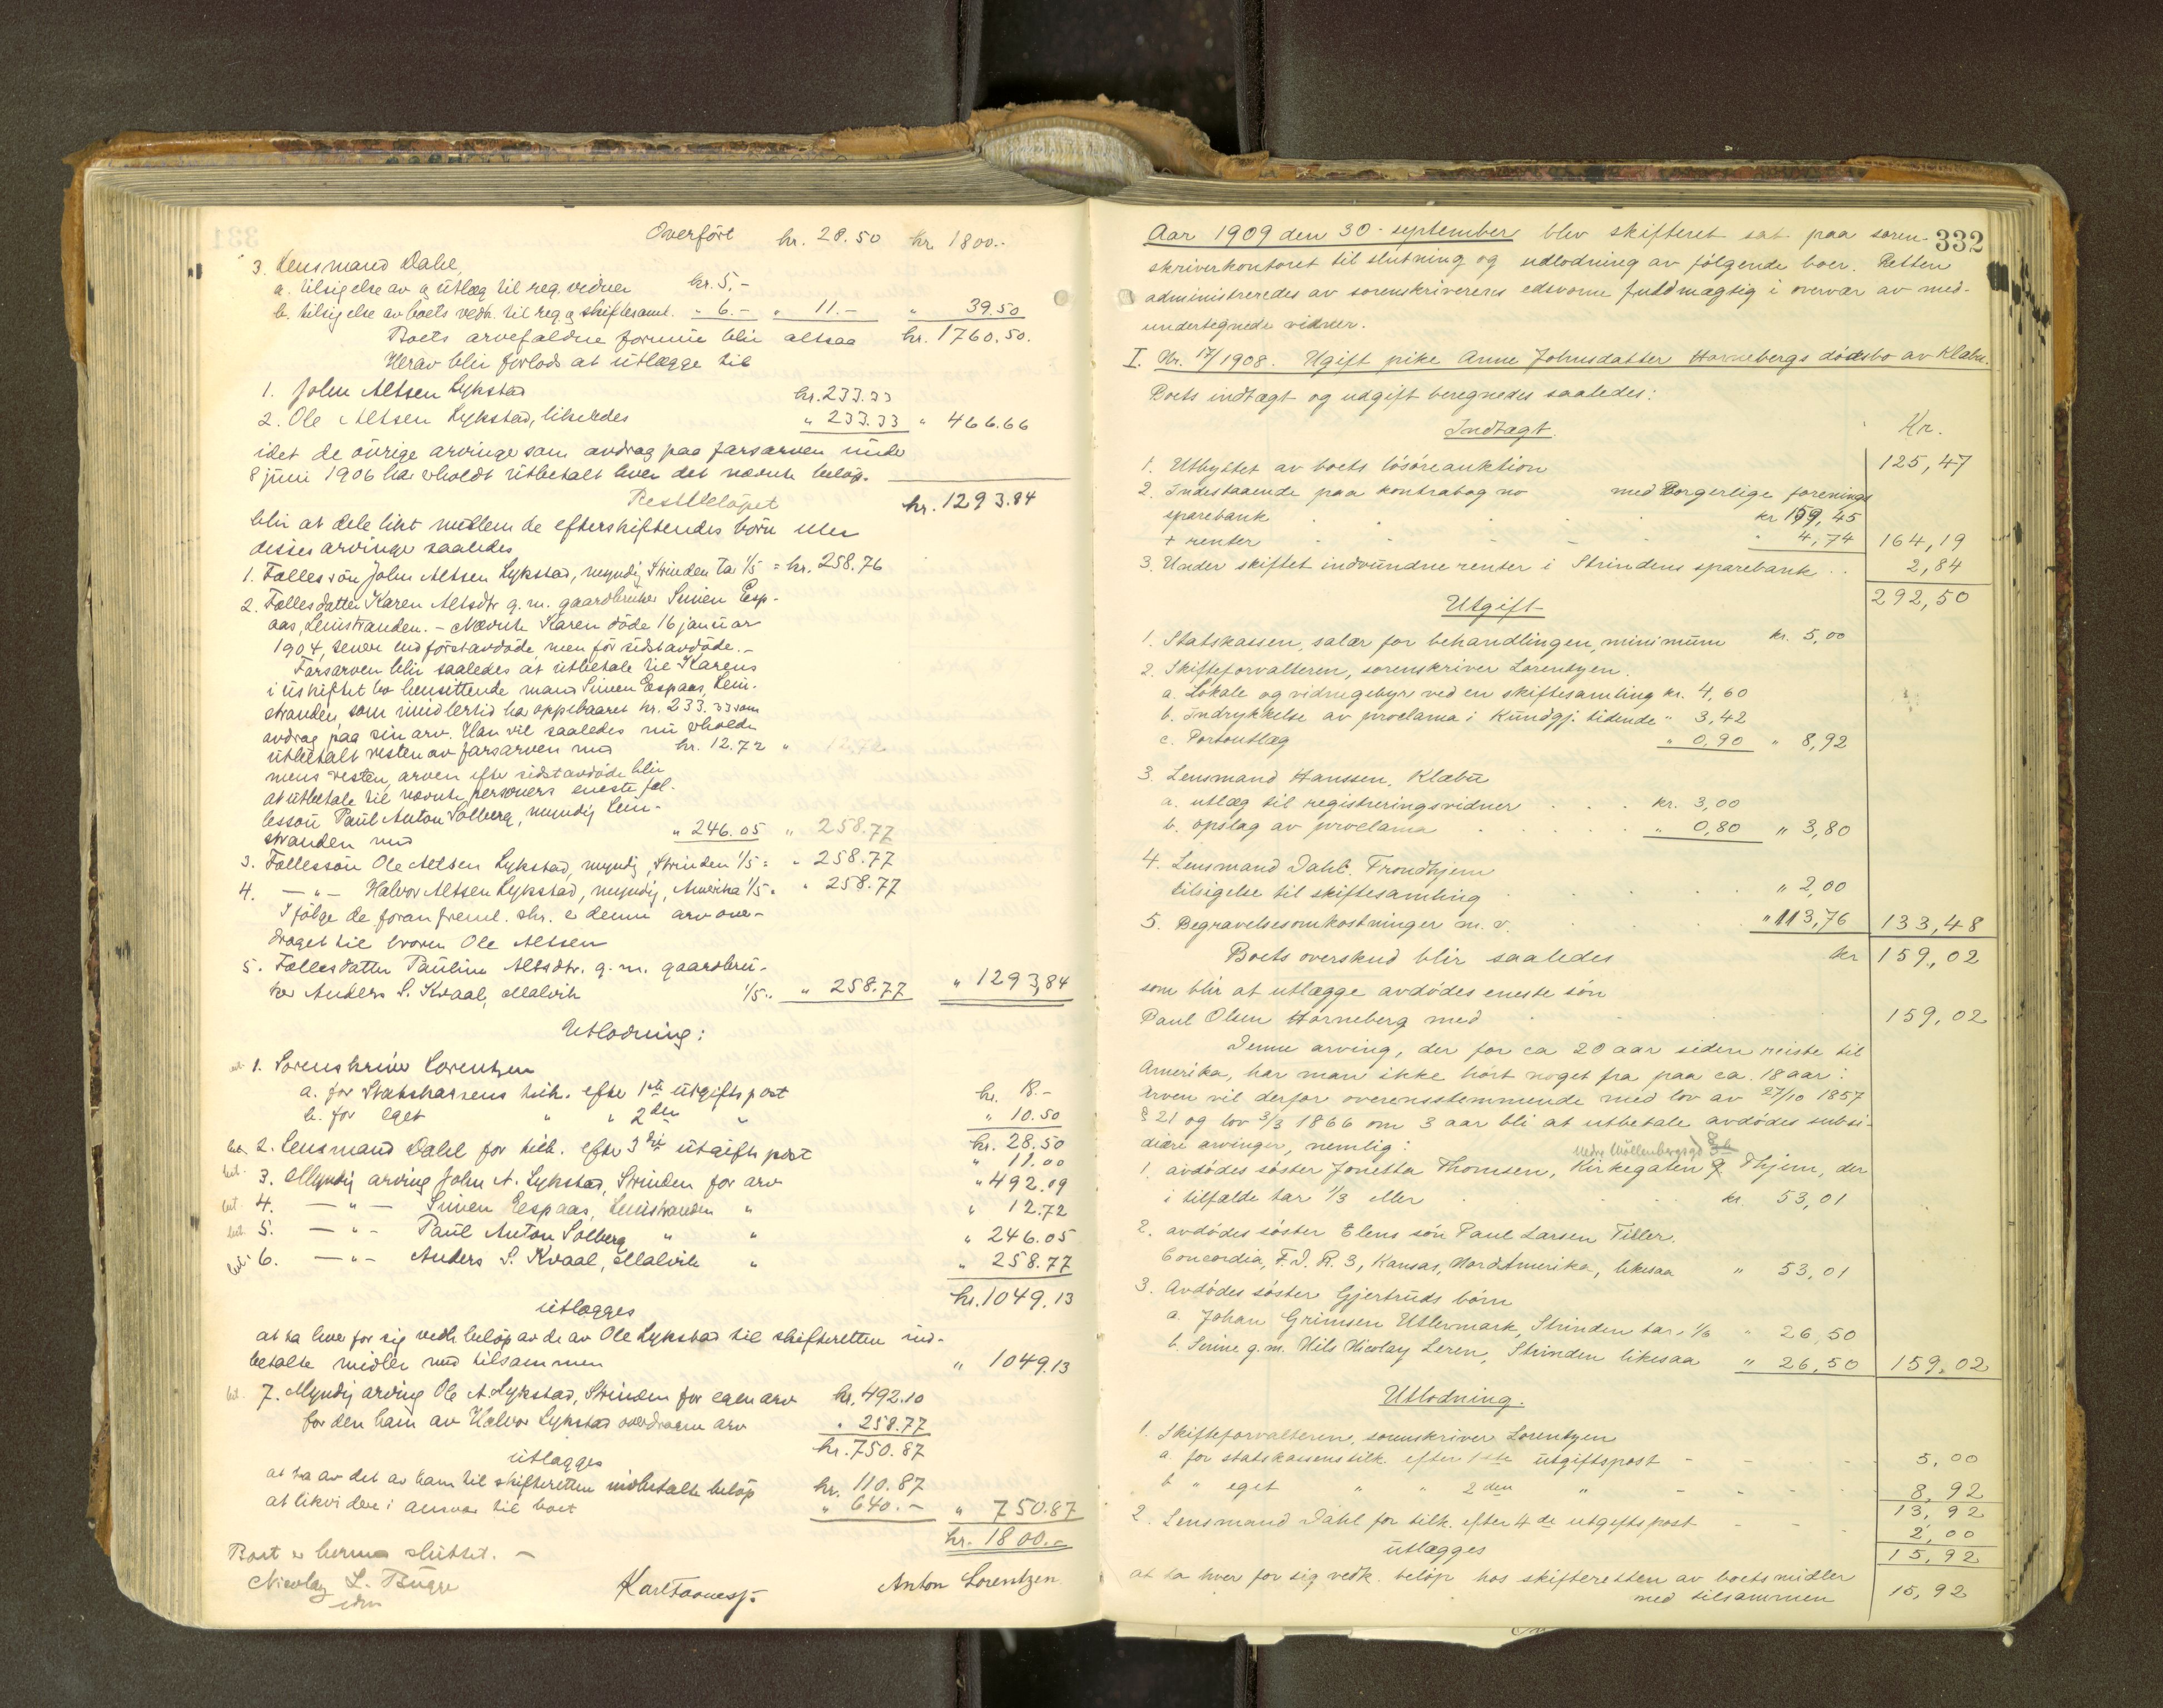 Overført kr. 28.50 kr 1800.-
3. Lensmand Dahl,
a. tilsigelse av og utlæg til reg. vidner kr. 5,-
b. tilsigelse av boets vedk. til reg. og skiftesaml. " 6.- " 11.- " 39.50
Boets arvefaldne formue blir altsaa kr. 1760.50.
Herav blir forlods at utlægge til
1. John Altsen Lykstad kr. 233.33
2. Ole Altsen Lykstad, likeledes " 233.33 " 466.66
idet de øvrige arvinge som avdrag paa farsarven under
8 juni 1906 har erholdt utbetalt hver det nævnte beløp.
Restbeløpet kr. 1293.84
blir at dele likt mellem de efterskiftendes børn eller
disses arvinge saaledes
1. Fælles søn John Altsen Lykstad, myndig Strinden tar 1/5 = kr. 258.76
2. Fælles datter Karen Altsdtr g. m. gaardbruker Simen Esp-
aas, Leinstranden. - Nævnte Karen døde 16 januar
1904, senere end førstavdøde, men før sidstavdøde. -
Farsarven blir saaledes at utbetale til Karens
i uskiftet bo hensittende mand Simen Espaas, Lein-
stranden, som imidlertid har oppebaaret kr. 233.33 som
avdrag paa sin arv. Han vil saaledes nu erholde
utbetalt resten av farsarven med kr. 12.72 " 12.72
mens resten, arven efter sidstavdøde blir
at utbetale til nævnte personers eneste fæl-
lessøn Paul Anton Solberg, myndig Lein-
stranden med " 246.05 " 258.77
3. Fællessøn Ole Altsen Lykstad, myndig, Strinden 1/5 = " 258.77
4. — " — Halvor Altsen Lykstad, myndig, Amerika 1/5 = " 258.77
Ifølge de foran freml. skr. er denne arv over-
draget til broren Ole Altsen
5. Fælles datter Pauline Altsdtr. g. m. gaardbru-
ker Anders S. Kvaal, Malvik 1/5 = " 258.77 " 1293,84
Utlodning:
1. Sorenskriver Lorentzen
a. for Statskassens tilk. efter 1ste utgiftspost kr. 18.-
b. for eget " " 2den " " 10.50
kr. 28.50
bet. 2. Lensmand Dahl for tilk. efter 3die utgiftspost " 11.00
bet. 3. Myndig arving John A. Lykstad, Strinden for arv " 492.09
bet. 4. — " — Simen Espaas, Leinstranden " " 12.72
bet. 5. — " — Paul Anton Solberg " " " 246.05
bet. 6. — " — Anders S. Kvaal, Malvik " " 258.77
kr. 1049.13
utlægges
at ta hver for sig vedk. beløp av de av Ole Lykstad til skifteretten ind-
betalte midler med tilsammen " 1049.13
bet. 7. Myndig arving Ole A. Lykstad, Strinden for egen arv kr. 492.10
for den ham av Halvor Lykstad overdragne arv " 258.77
kr. 750.87
utlægges
at ta av det av ham til skifteretten indbetalte beløp kr. 110.87
at likvidere i ansvar til boet " 640.- " 750.87
kr. 1800.-
Boet er hermed sluttet. -
Nicolay L. Bugge
edsv
Karl Foosnæs jr.
Anton Lorentzen
332
Aar 1909 den 30- september blev skifteret sat paa soren-
skriverkontoret til slutning og udlodning av følgende boer. Retten
administreredes av sorenskriverens edsvorne fuldmægtig i overvær av med-
undertegnede vidner.
I. Nr. 17/1908. Ugift pike Anne Johnsdatter Hornebergs dødsbo av Klæbu.
Boets indtægt og udgift beregnedes saaledes:
Indtægt. Kr.
1. Utbyttet av boets løsøreauktion 125,47
2. Indestaaende paa kontrabog no med Borgerlige forenings
sparebank kr 159,45
+ renter " 4,74 164,19
3. Under skiftet indvundne renter i Strindens sparebank 2,84
292,50
Utgift
1. Statskassen, salær for behandlingen, minimum kr. 5,00
2. Skifteforvalteren, sorenskriver Lorentzen.
a. Lokale og vidnegebyr ved en skiftesamling kr. 4,60
b. Indrykkelse av proclama i Kundgj. tidende " 3,42
c. Portoutlæg " 0,90 " 8,92
3. Lensmand Hanssen, Klæbu
a. utlæg til registreringsvidner kr. 3,00
b. opslag av proclama " 0,80 " 3,80
4. Lensmand Dahl. Trondhjem
tilsigelse til skiftesamling " 2,00
5. Begravelsesomkostninger m. v. " 113,76 133,48
Boets overskud blir saaledes kr 159,02
som blir at utlægge avdødes eneste søn
Paul Olsen Horneberg med 159,02
Denne arving, der for ca 20 aar siden reiste til
Amerika, har man ikke hørt noget fra paa ca. 18 aar:
Arven vil derfor overensstemmende med lov av 27/10 1857
§ 21 og lov 3/3 1866 om 3 aar bli at utbetale avdødes subsi-
diære arvinger, nemlig:
Nedre Møllenbergsgd 36
1. avdødes søster Jonetta Thomsen, Kirkegaten 9 Thjem, der
i tilfælde tar 1/3 eller kr 53,01
2. avdødes søster Elens søn Paul Larsen Tiller.
Concordia, F. D. R. 3, Kansas, Nord Amerika, likesaa " 53,01
3. Avdødes søster Gjertruds børn
a. Johan Grimsen Utlermark, Strinden tar 1/6 " 26,50
b. Serine g. m. Nils Nicolay Leren, Strinden likesaa " 26,50 159,02
Utlodning.
1. Skifteforvalteren, sorenskriver Lorentzen
a. for statskassens tilk. efter 1ste utgiftspost 5,00
b " eget " " 2den " 8,92
13,92
2. Lensmand Dahl for tilk. efter 4de utgiftspost 2,00
utlægges 15,92
at ta hver for sig vedk. beløp hos skifteretten av boets midler
med tilsammen 15,92